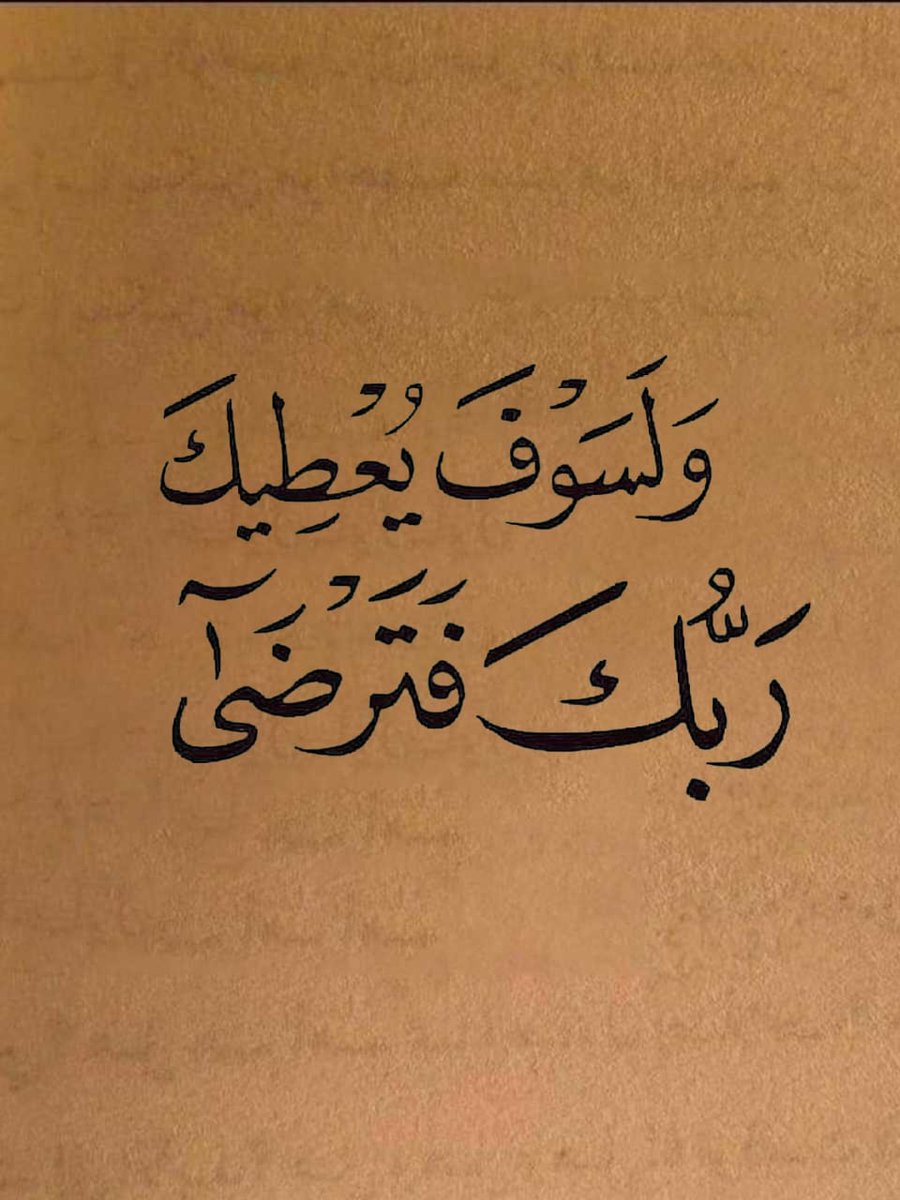 وَلَسَوْفَ يُعْطِيكَ
رَبُّكَ فَتَرْضَىٰٓ